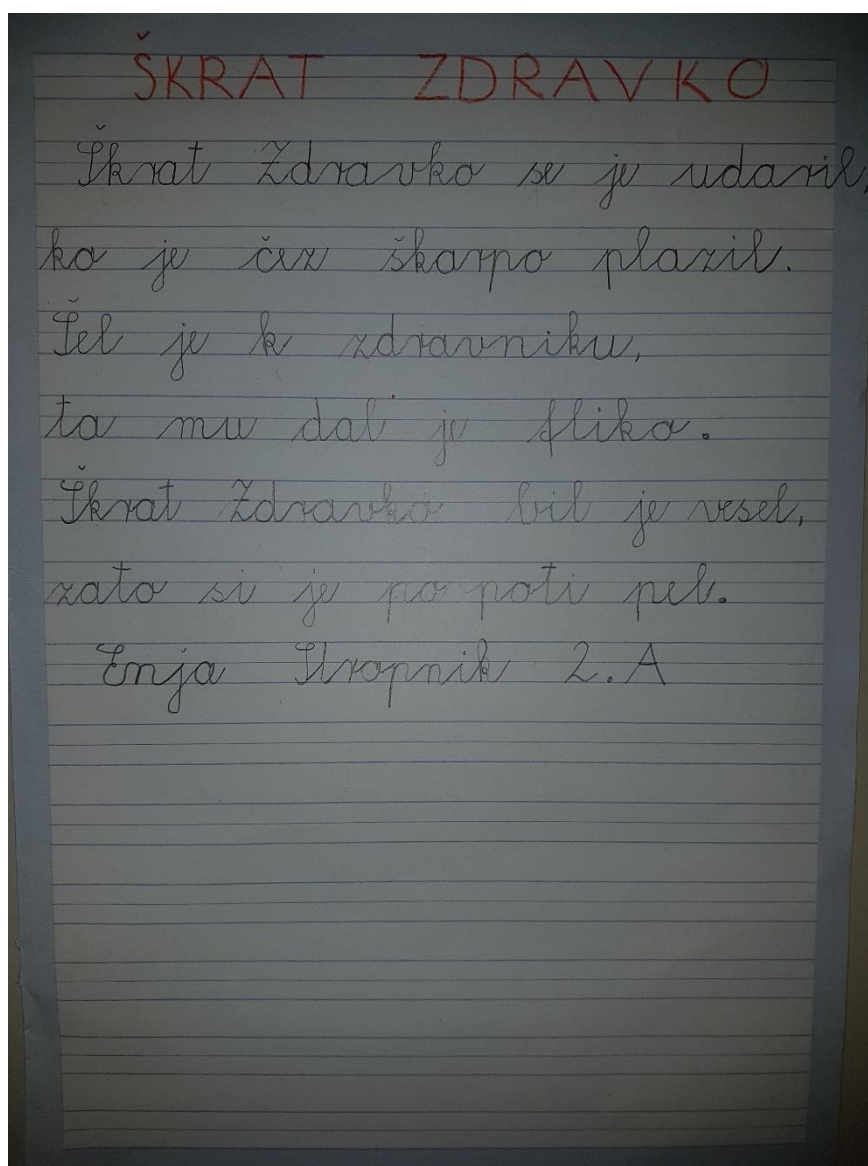 ŠKRAT ZDRAVKO
Škrat Zdravko se je udaril,
ko je čez škarpo plazil.
Šel je k zdravniku,
ta mu dal je fliko.
Škrat Zdravko bil je vesel,
zato si je po poti pel.
Enja Stropnik 2. A